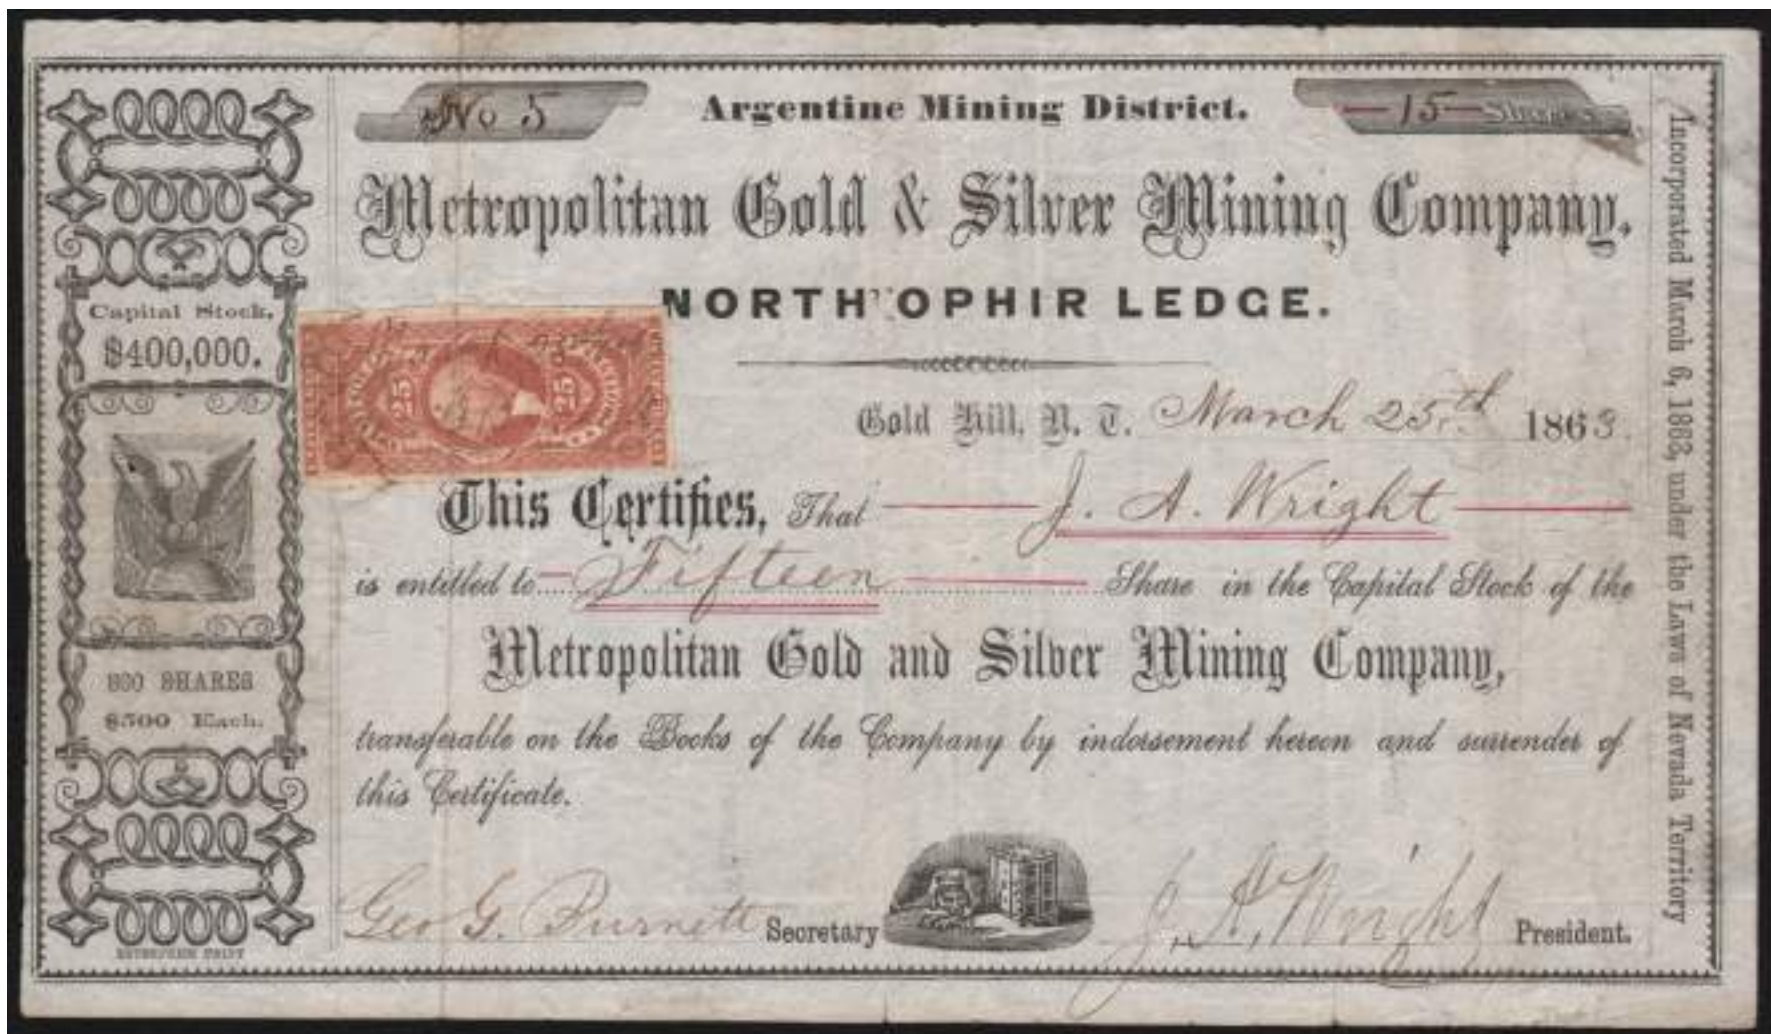 No 5
Argentine Mining District.
15 Shares
Metropolitan Gold & Silver Mining Company.
NORTH OPHIR LEDGE.
Capital Stock,
$400,000.
25
25
Gold Hill, N. T. March 25th 1863.
This Certifies, That J. A. Wright
is entitled to Fifteen Share in the Capital Stock of the
Metropolitan Gold and Silver Mining Company,
800 SHARES
$500 Each.
transferable on the Books of the Company by indorsement hereon and surrender of
this Certificate.
Geo G. Burnett Secretary
J. A. Wright President.
Incorporated March 6, 1863, under the Laws of Nevada Territory